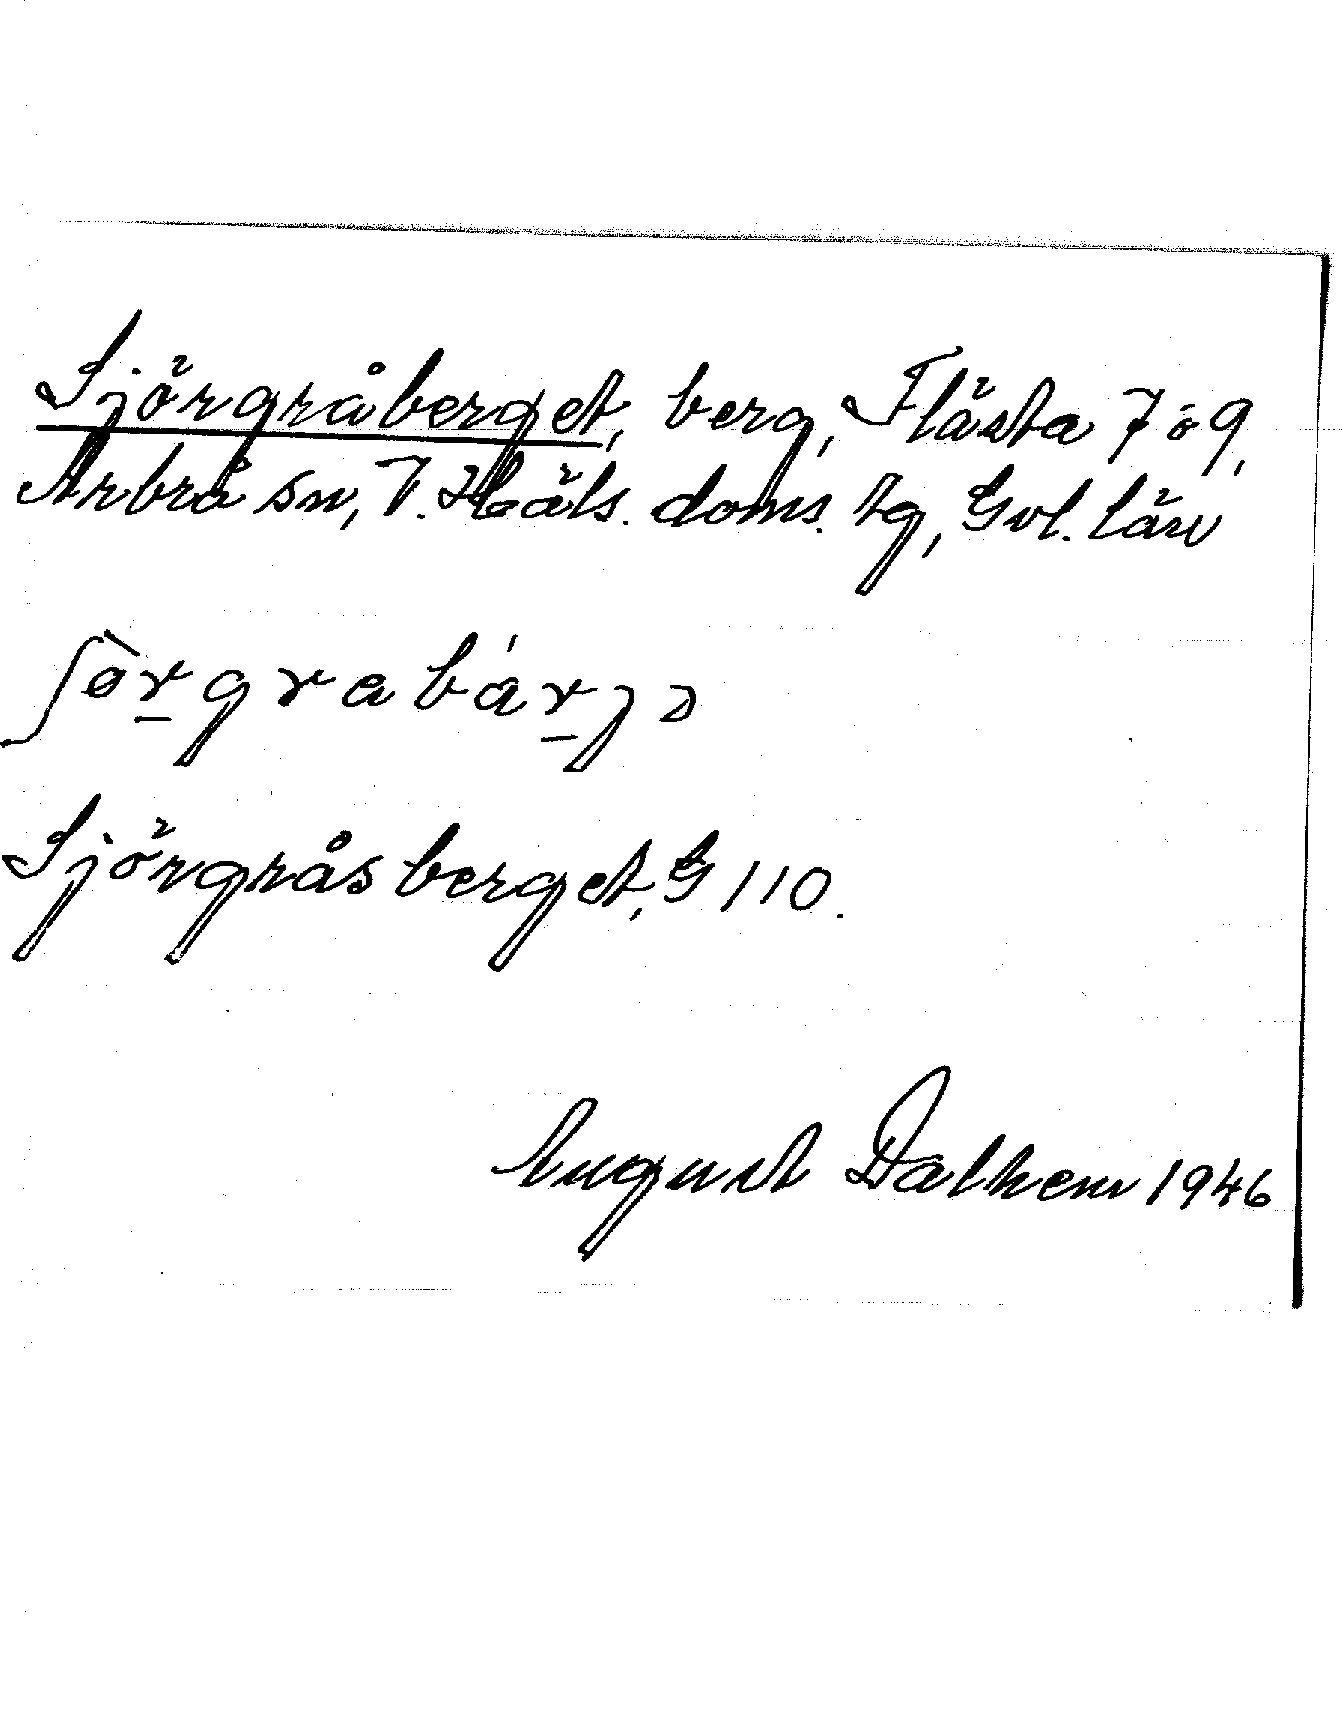 Sjörgråberget, berg, Flästa 7 o 9,
Arbrå sn, V. Häls. doms. tg, Gvl. län
ʃø̀r̲grabár̲jə
Sjörgråsberget, G 110.
August Dalhem 1946